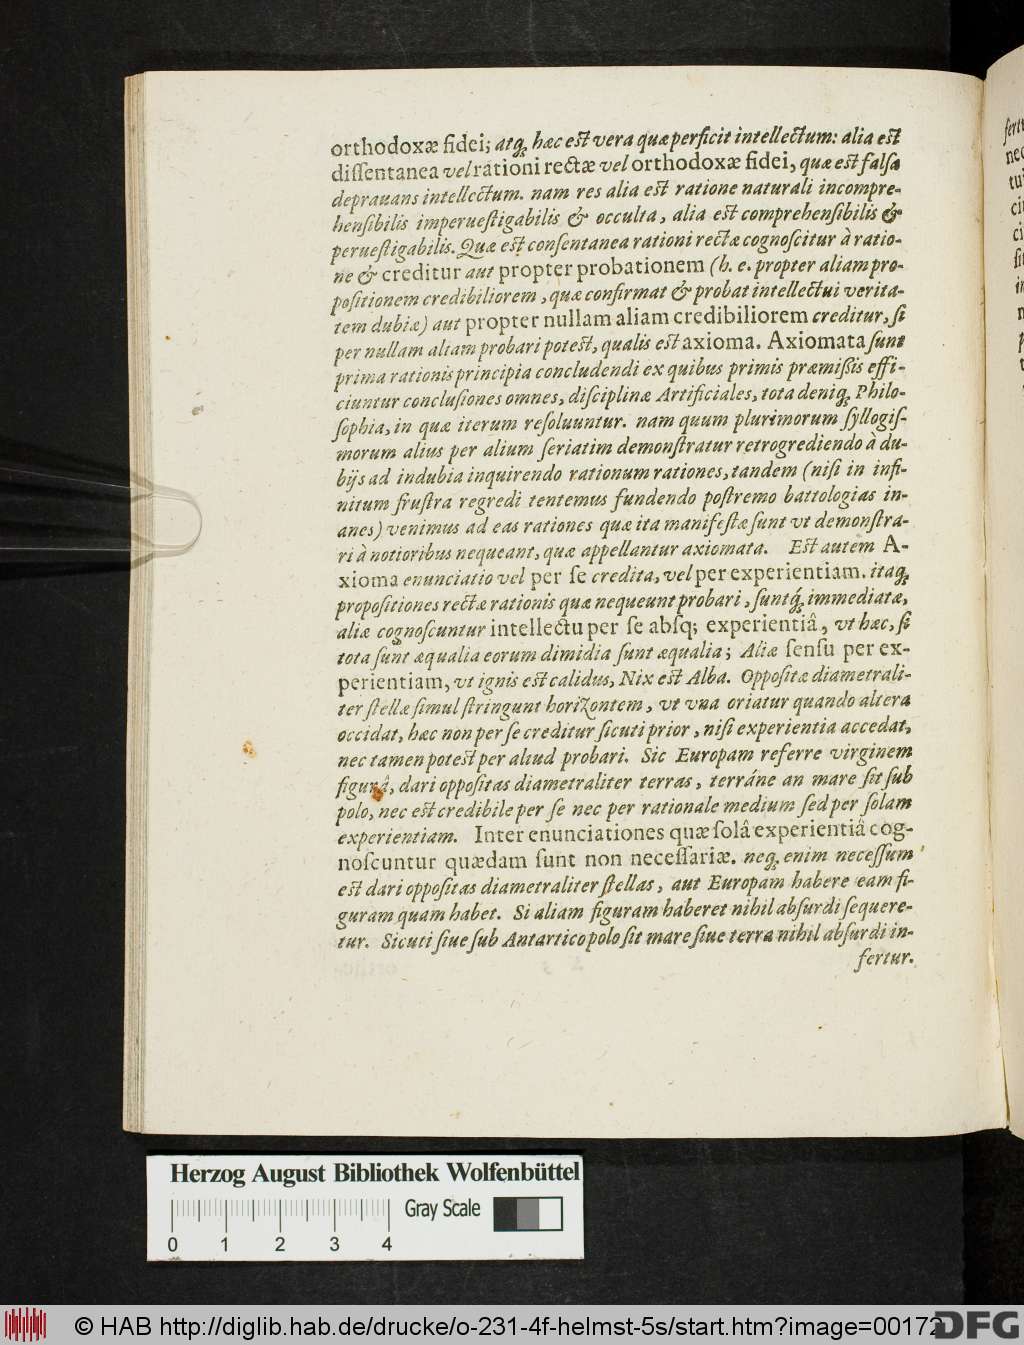 orthodoxæ fidei; atq; hæc est vera quæ perficit intellectum: alia est
dissentanea vel rationi rectæ vel orthodoxæ fidei, quæ est falsa
deprauans intellectum. nam res alia est ratione naturali incompre-
hensibilis imperuestigabilis & occulta, alia est comprehensibilis &
peruestigabilis. Quæ est consentanea rationi rectæ cognoscitur à ratio-
ne & creditur aut propter probationem (h. e. propter aliam pro-
positionem credibiliorem, quæ confirmat & probat intellectui verita-
tem dubiæ) aut propter nullam aliam credibiliorem creditur, si
per nullam aliam probari potest, qualis est axioma. Axiomata sunt
prima rationis principia concludendi ex quibus primis præmißis effi-
ciuntur conclusiones omnes, disciplinæ Artificiales, tota deniq; Philo-
sophia, in quæ iterum resoluuntur. nam quum plurimorum syllogis-
morum alius per alium seriatim demonstratur retrogrediendo à du-
bijs ad indubia inquirendo rationum rationes, tandem (nisi in infi-
nitum frustra regredi tentemus fundendo postremo battologias in-
anes) venimus ad eas rationes quæ ita manifestæ sunt vt demonstra-
ri à notioribus nequeant, quæ appellantur axiomata. Est autem A-
xioma enunciatio vel per se credita, vel per experientiam. itaq;
propositiones rectæ rationis quæ nequeunt probari, suntq́; immediatæ,
aliæ cognoscuntur intellectu per se absq; experientiâ, vt hæc, si
tota sunt æqualia eorum dimidia sunt æqualia; Aliæ sensu per ex-
perientiam, vt ignis est calidus, Nix est Alba. Oppositæ diametrali-
ter stellæ simul stringunt horizontem, vt vna oriatur quando altera
occidat, hæc non per se creditur sicuti prior, nisi experientia accedat,
nec tamen potest per aliud probari. Sic Europam referre virginem
figurâ, dari oppositas diametraliter terras, terráne an mare sit sub
polo, nec est credibile per se nec per rationale medium sed per solam
experientiam. Inter enunciationes quæ solâ experientiâ cog-
noscuntur quædam sunt non necessariæ. neq; enim necessum
est dari oppositas diametraliter stellas, aut Europam habere eam fi-
guram quam habet. Si aliam figuram haberet nihil absurdi sequere-
tur. Sicuti siue sub Antartico polo sit mare siue terra nihil absurdi in-
fertur.
Herzog August Bibliothek Wolfenbüttel
Gray Scale
0 1 2 3 4
© HAB http://diglib.hab.de/drucke/o-231-4f-helmst-5s/start.htm?image=00172
DFG